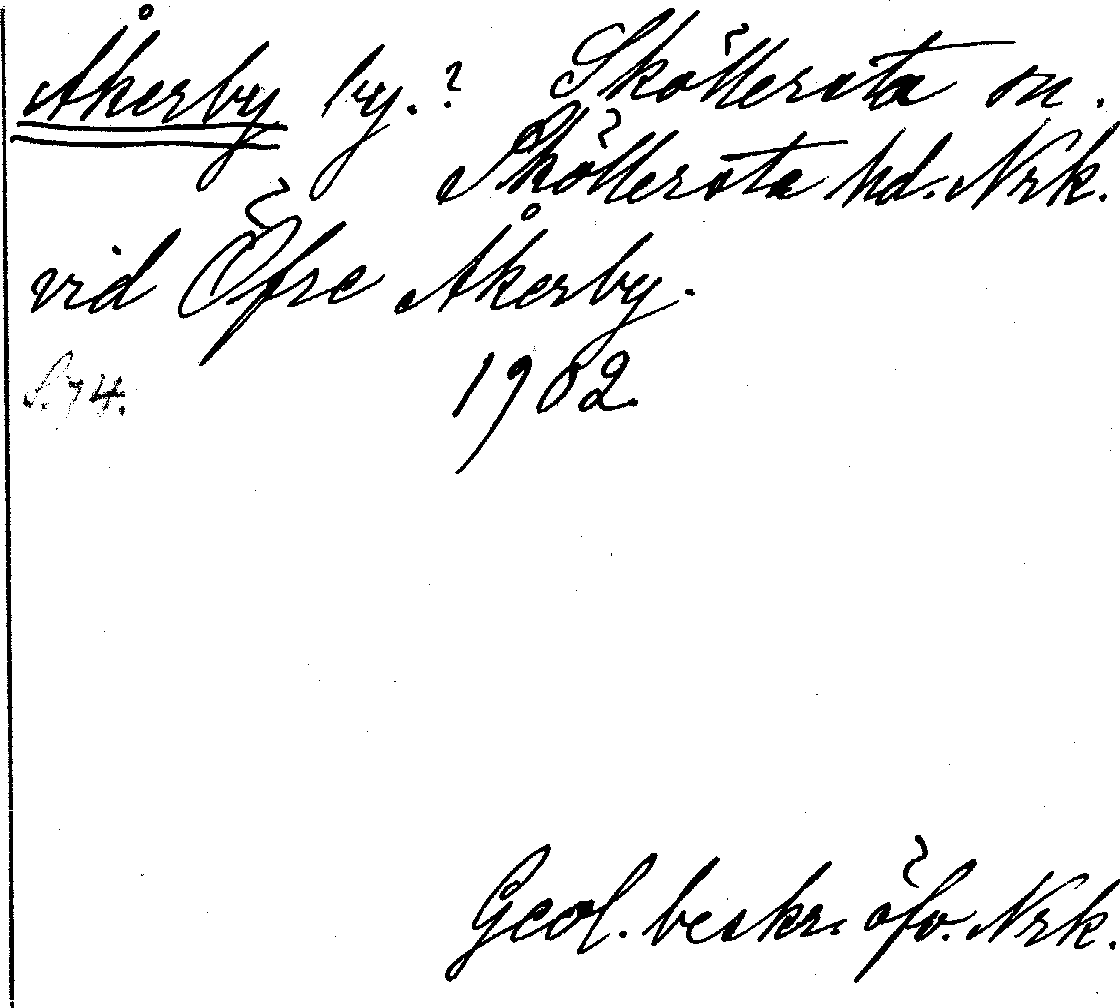 Åkerby by.? Sköllersta sn.
Sköllersta hd. Nrk.
vid Öfre Åkerby.
S. 74. 1902.
Geol. beskr. öfv. Nrk.